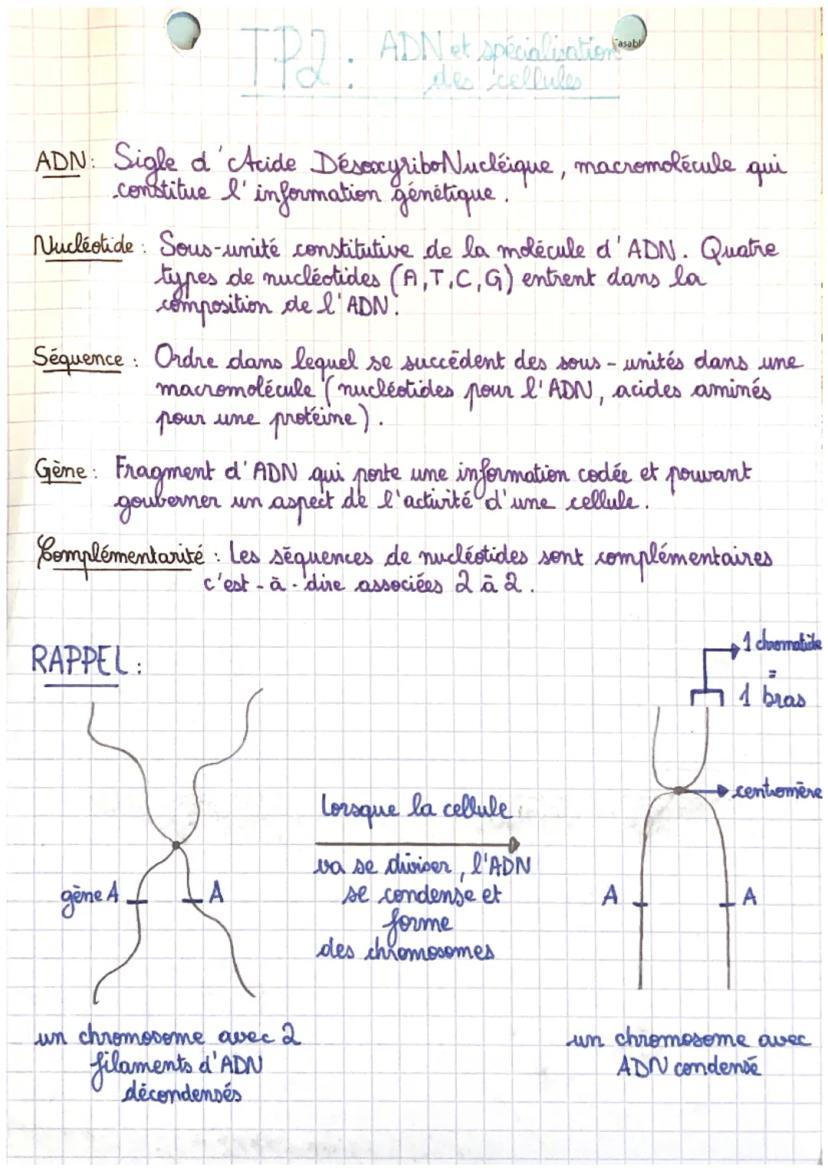 TP2 : ADN et spécialisation
des cellules
ADN : Sigle d'Acide DésoxyriboNucléique, macromolécule qui
constitue l'information génétique.
Nucléotide : Sous-unité constitutive de la molécule d'ADN. Quatre
types de nucléotides (A,T,C,G) entrent dans la
composition de l'ADN.
Séquence : Ordre dans lequel se succèdent des sous-unités dans une
macromolécule (nucléotides pour l'ADN, acides aminés
pour une protéine).
Gène : Fragment d'ADN qui porte une information codée et pouvant
gouberner un aspect de l'activité d'une cellule.
Complémentarité : Les séquences de nucléotides sont complémentaires
c'est-à-dire associées 2 à 2.
RAPPEL :
1 chromatide
=
1 bras
centromère
Lorsque la cellule
va se diviser, l'ADN
se condense et
forme
des chromosomes
gène A
A
A
A
un chromosome avec 2
filaments d'ADN
décondensés
un chromosome avec
ADN condensé